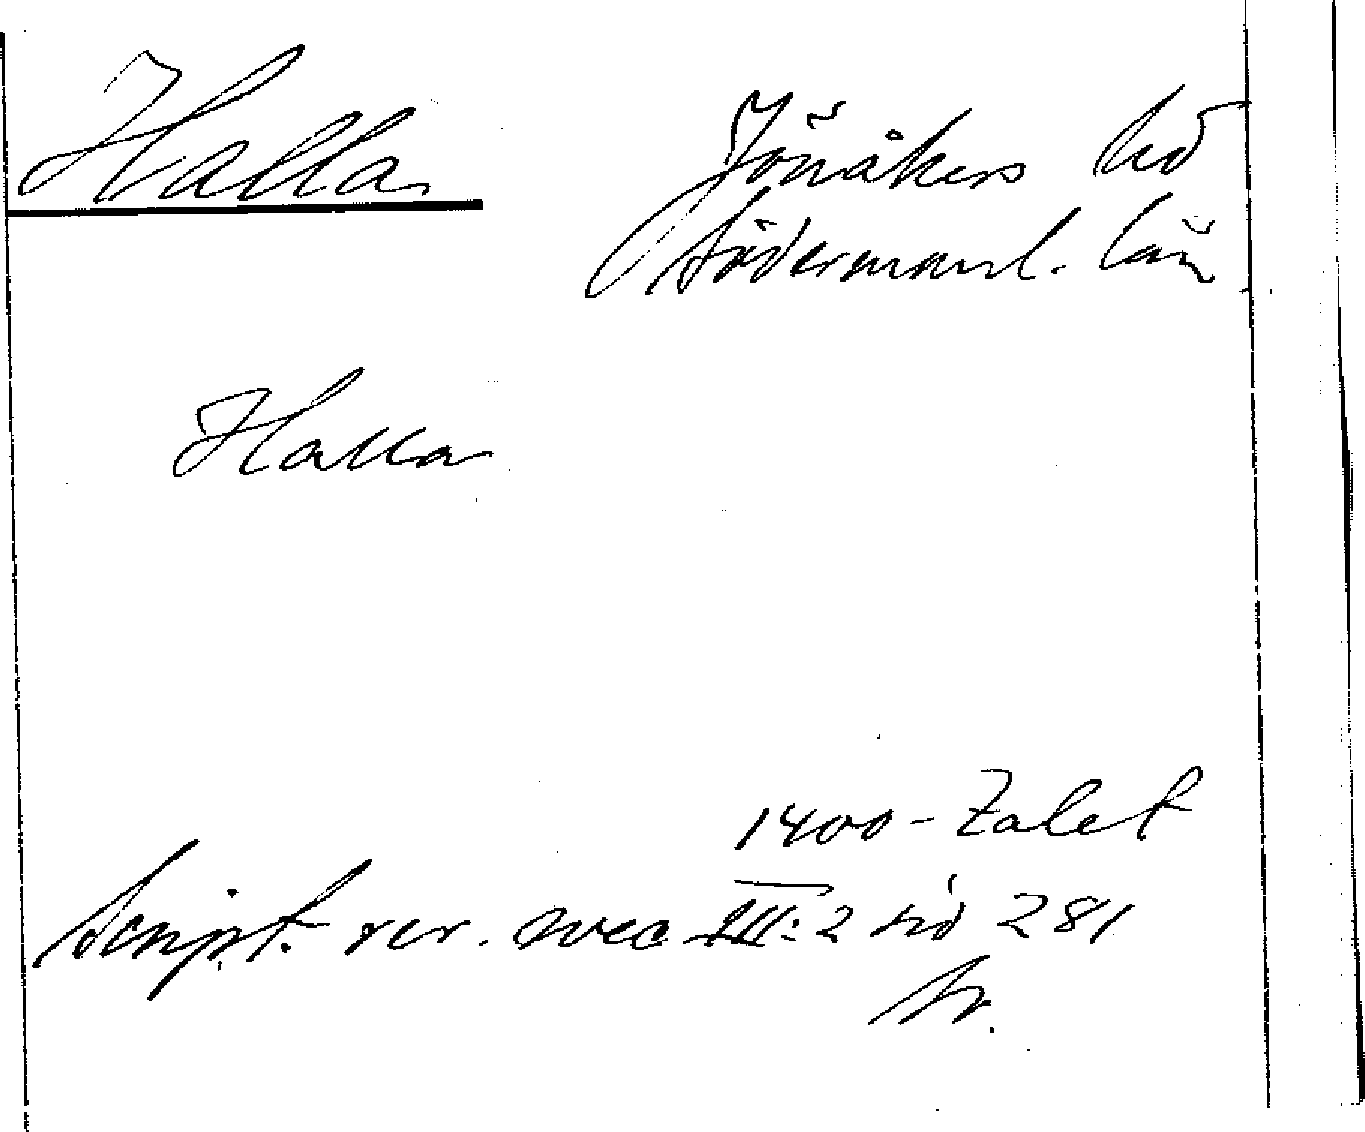 Halla
Jönåkers hd
Södermanl. län
Halla
1400-talet
Script. rer. svec III:2 sid 281